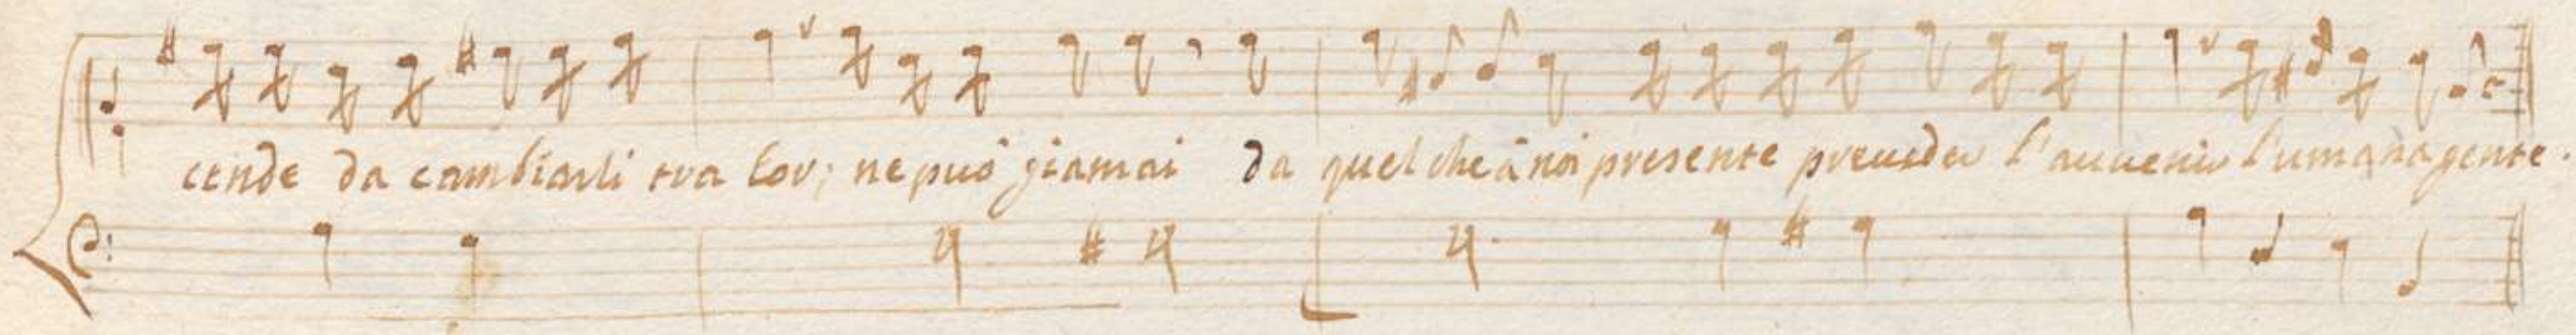 cende da cambiarli tra lor; ne può giamai da quel che à noi presente preueder l'auuenir l'umana gente.